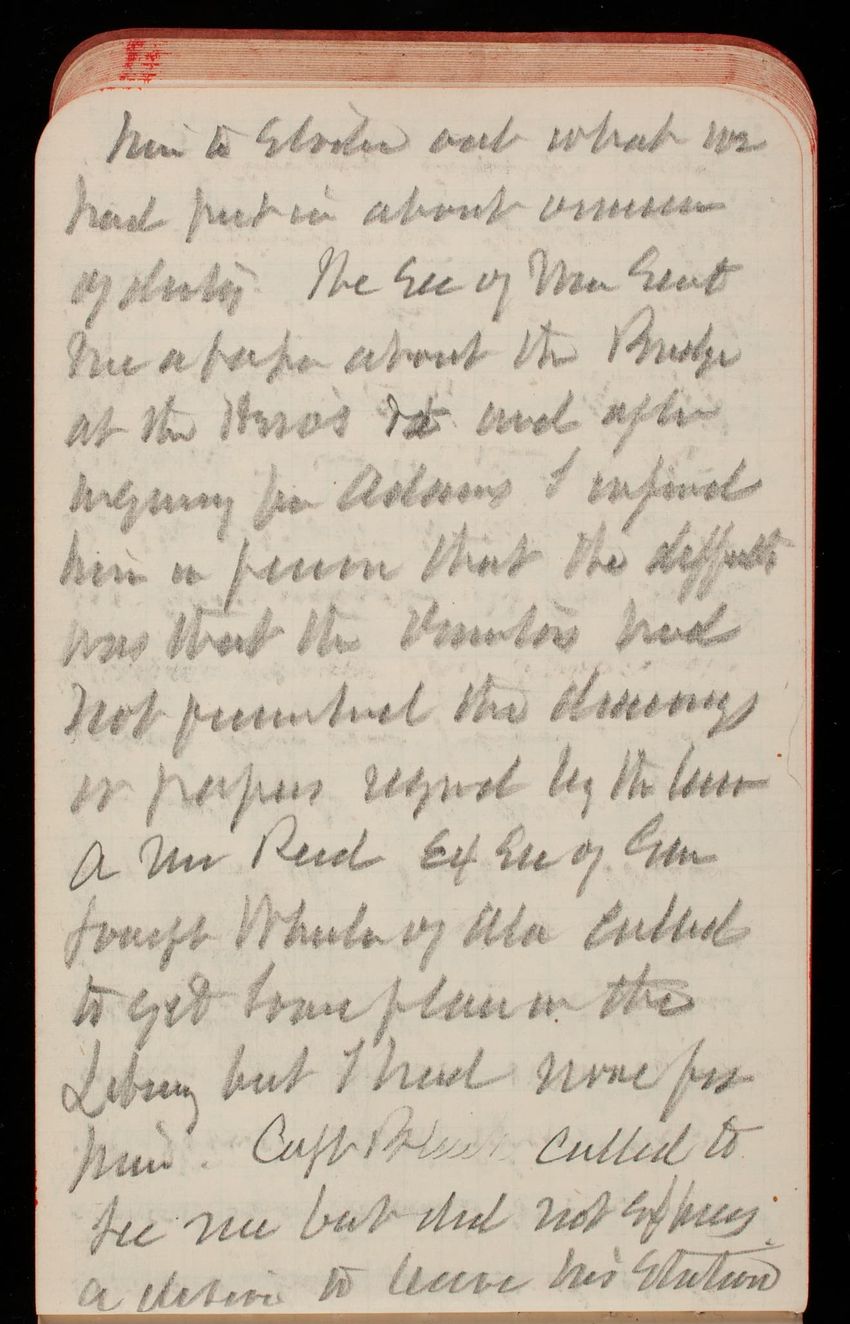 him to strike out what we
had put in about omission
of duty The Sec of War sent
me a paper about the Bridge
at the and after
inquiry for Adams I informd
him in person that the difficult
was that the had
not presented the drawings
or papers requird by the law
A Mr Reed Ex Sec of Gen
Joseph Wheeler of Ala called
to get some place in the
Library but I had none for
him. Capt called to
see me but did not express
a desire to leave his station